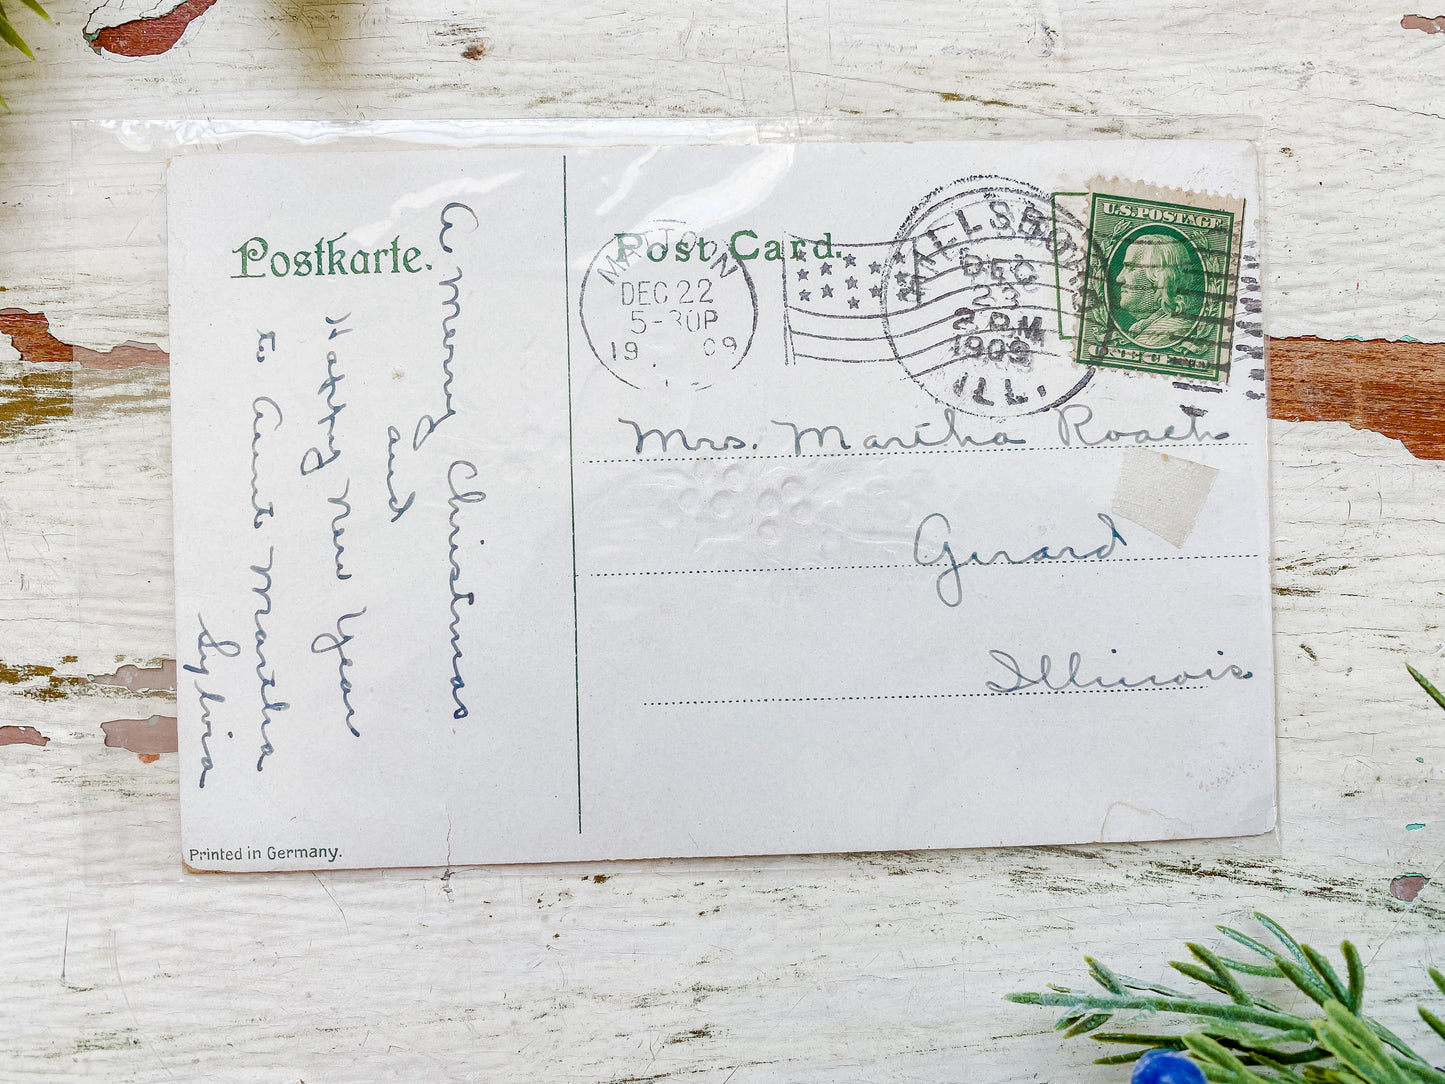 Postkarte.
Post Card.
a Merry Christmas
and
Happy New Year
to Aunt Martha
Sylvia
Printed in Germany.
MATTOON
DEC 22
5-30P
19 09
HILLSBORO
DEC
23
2 PM
1909
ILL.
U.S. POSTAGE
Mrs. Martha Roach
Girard
Illinois